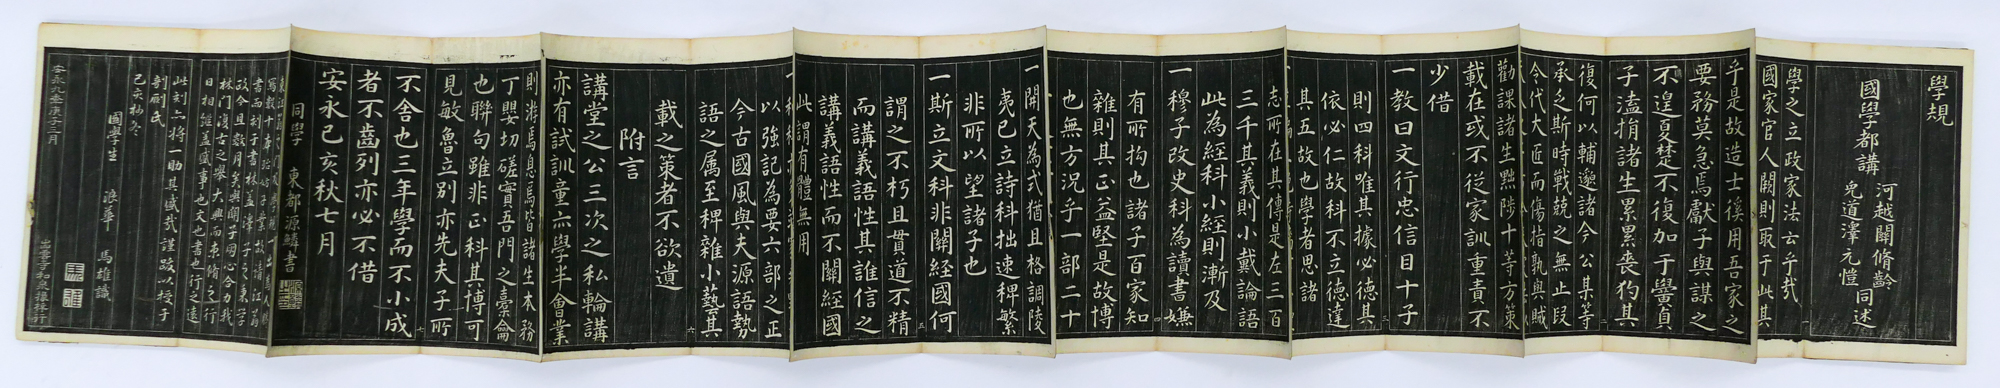 學規
國學都講
河越關脩齡
兔道澤元愷
同述
學之立政家法云乎哉
國家官人闕則取于此其
乎是故造士徯用吾家之
要務莫急焉獻子與謀之
不遑夏楚不復加于黌貞
子溘捐諸生累累喪狗其
復何以輔邈諸今公某等
承乏斯時戰兢之無止段
令代大匠而傷指孰與賊
勸課諸生黜陟十等方策
載在或不從家訓重責不
少借
一教曰文行忠信目十子
則四科唯其據必德其
依必仁故科不立德達
其五故也學者思諸
志所在其傳是左三百
三千其義則小戴論語
此為經科小經則漸及
一穆子改史科為讀書嫌
有所拘也諸子百家知
雜則其正益堅是故博
也無方況乎一部二十
一開天為式猶且格調陵
夷已立詩科拙速稗繁
非所以望諸子也
一斯立文科非關經國何
謂之不朽且貫道不精
而講義語性其誰信之
講義語性而不關經國
此謂有體無用
以強記為要六部之正
今古國風與夫源語勢
語之属至稗雜小藝其
載之策者不欲遺
附言
講堂之公三次之私輪講
亦有試訓童亦學半會業
則游焉息焉皆諸生本務
丁嬰切磋實吾門之臺龠
也聯句雖非正科其博可
見敏魯立別亦先夫子所
不舍也三年學而不小成
者不齒列亦必不借
安永己亥秋七月
同學 東都源鱗書
書而刻于書林孟津子之業
政令且數月矣與關子同心合力我
林門復古之舉大興而東脩之行
日相繼盖盛事也文也書也行之遠
此刻亦將一助具盛哉謹跋以授于
剞劂氏
己亥秒冬
國學生 浪華 馬雄識
安永九年庚子三月